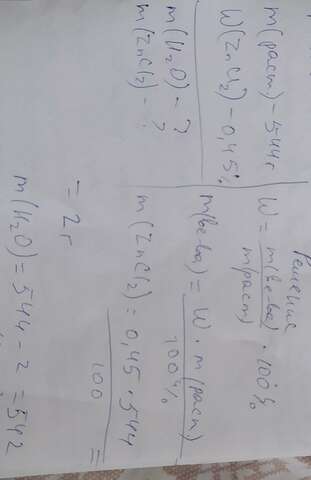 m(раст) - 544г
W(ZnCl₂) - 0,45%
m(H₂O) - ?
m(ZnCl₂) - ?
Решение
W = m(в-ва) / m(раст) · 100%
m(в-ва) = W · m(расп) / 100%
m(ZnCl₂) = 0,45 · 544 / 100 =
= 2г
m(H₂O) = 544 - 2 = 542